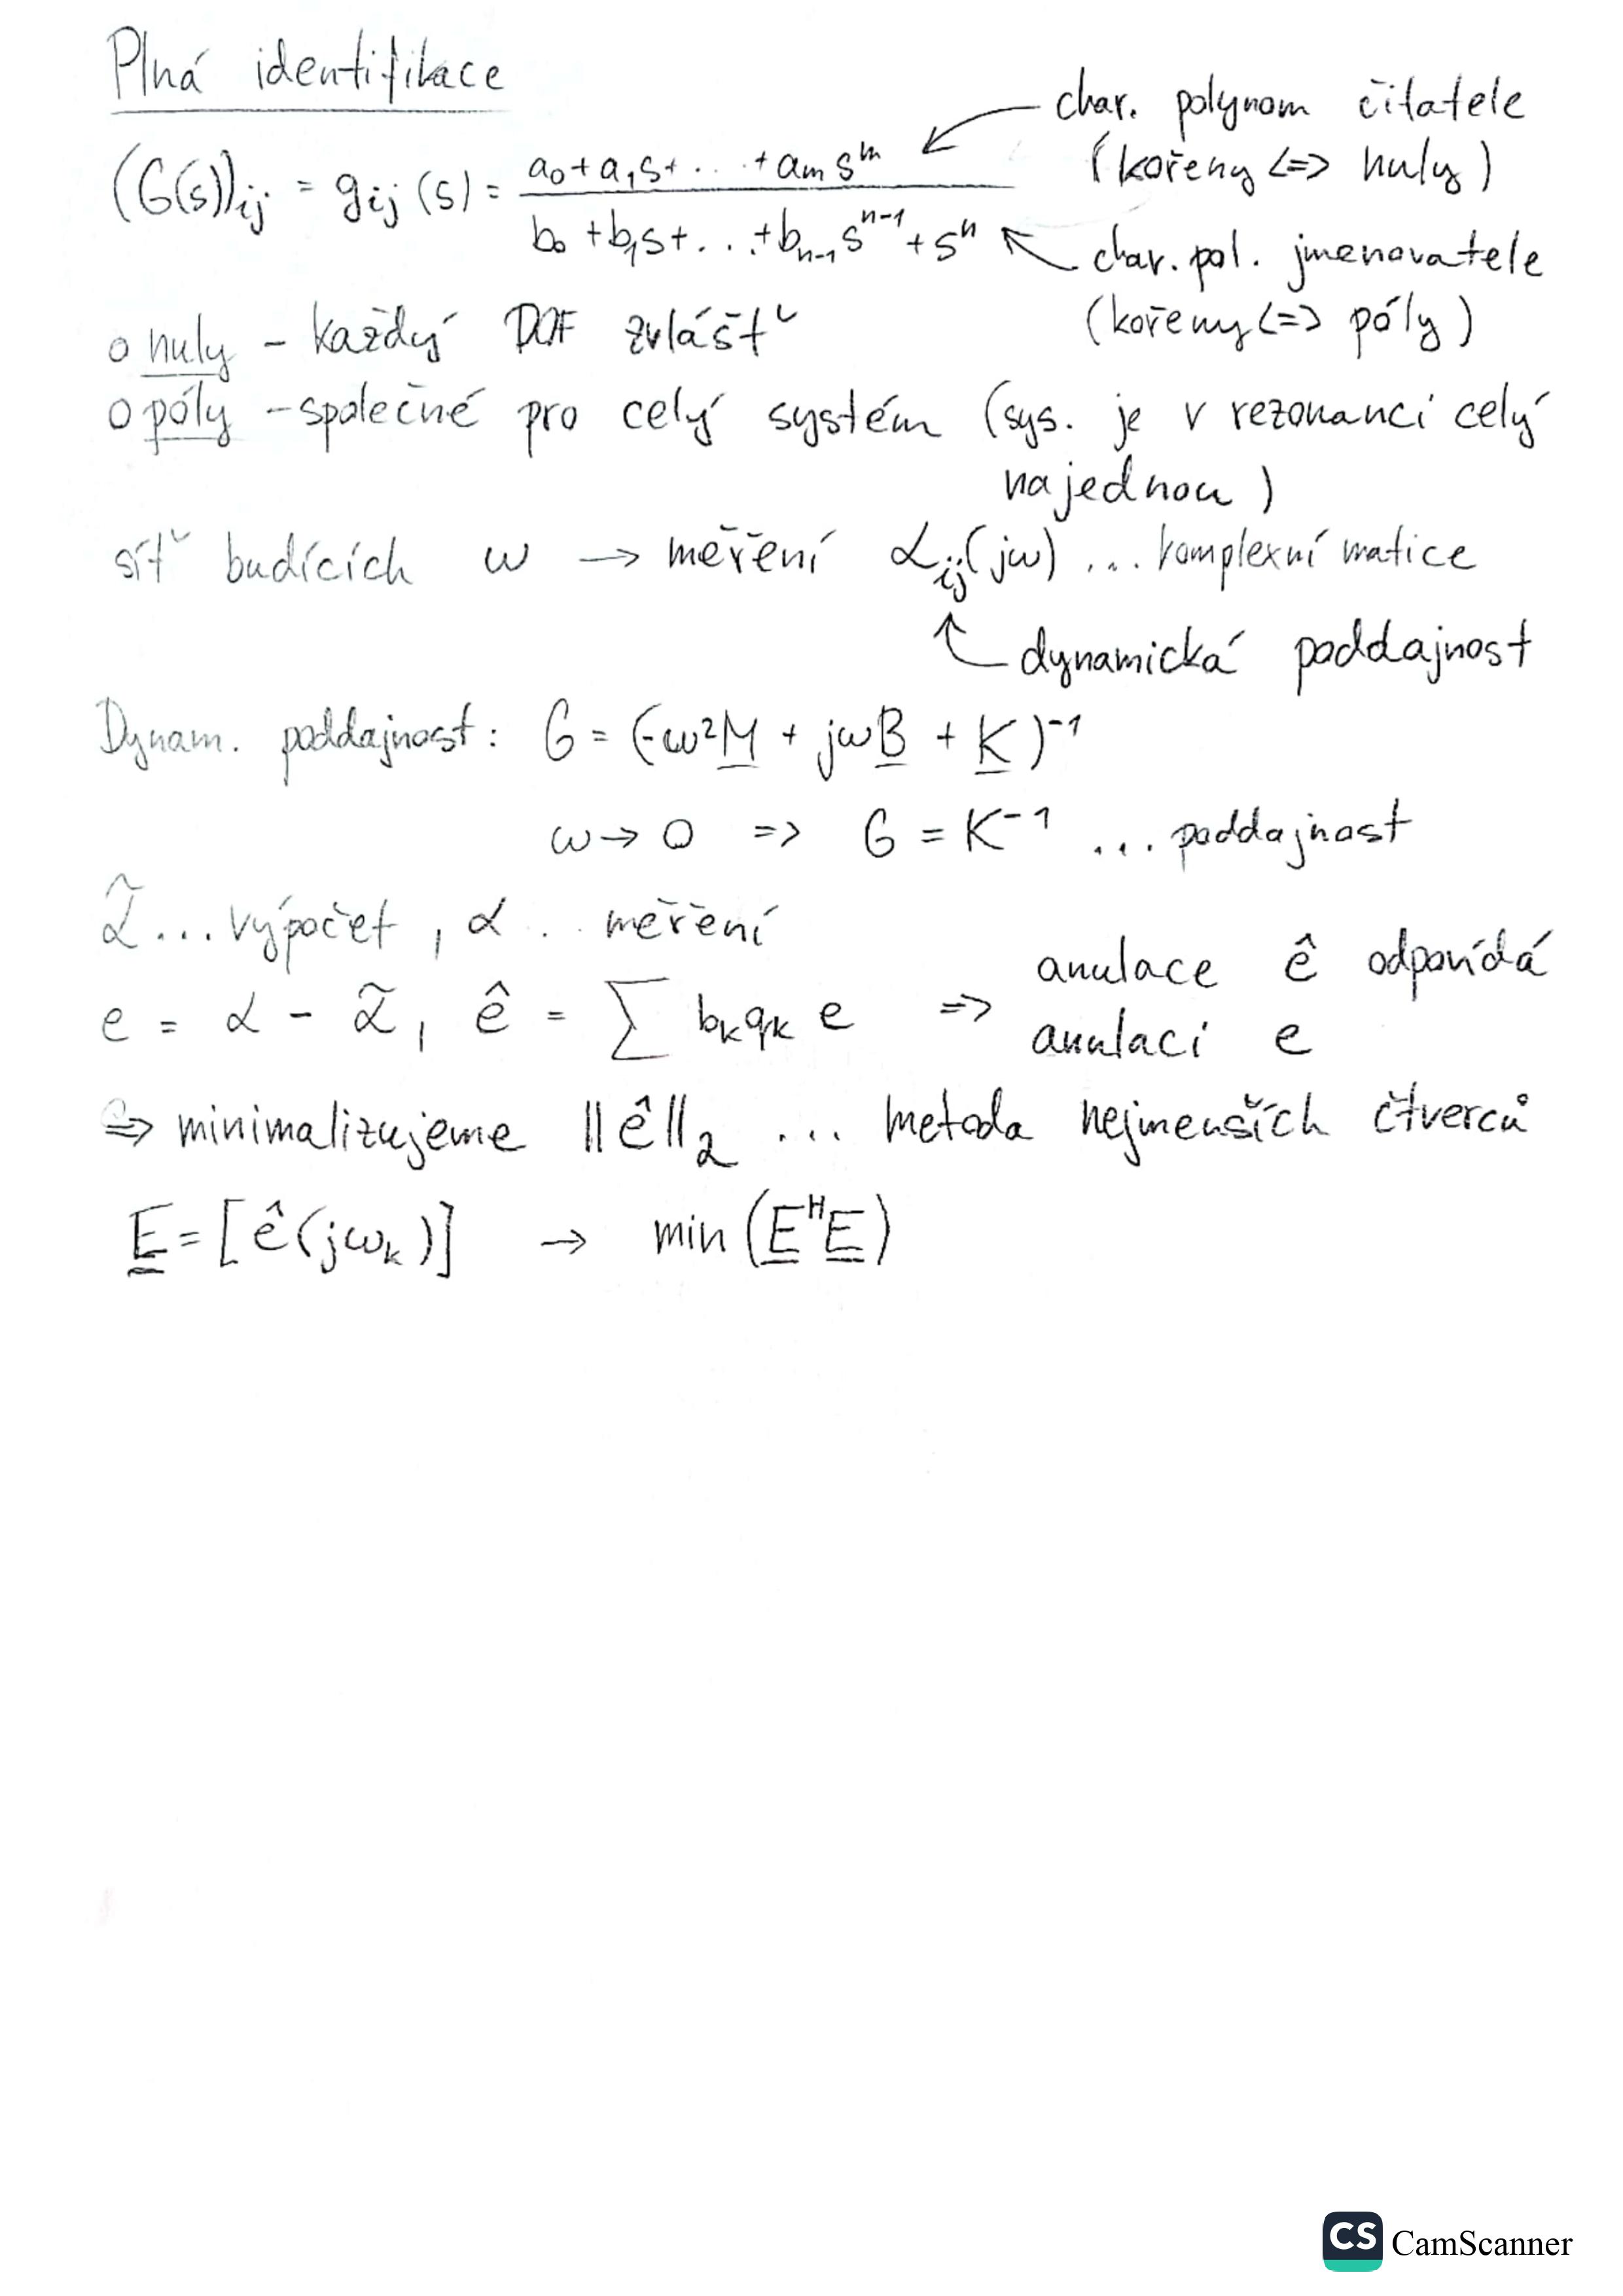 Plná identifikace
char. polynom čitatele
(kořeny <=> nuly)
(G(s))ij = gij (s) = (a0 + a1s + ... + am s^m) / (b0 + b1s + ... + bn-1 s^n-1 + s^n)
char. pol. jmenovatele
(kořeny <=> póly)
o nuly - každý DOF zvlášť
o póly - společné pro celý systém (sys. je v rezonanci celý
najednou)
síť budících ω → měření αij(jω) ... komplexní matice
dynamická poddajnost
Dynam. poddajnost: G = (-ω²M + jωB + K)⁻¹
ω → 0 => G = K⁻¹ ... poddajnost
α̃ ... výpočet, α .. měření
e = α - α̃, ê = ∑ bk qk e => anulace ê odpovídá
anulaci e
=> minimalizujeme ||ê||2 ... metoda nejmenších čtverců
E = [ê(jωk)] → min (E^H E)
CS CamScanner